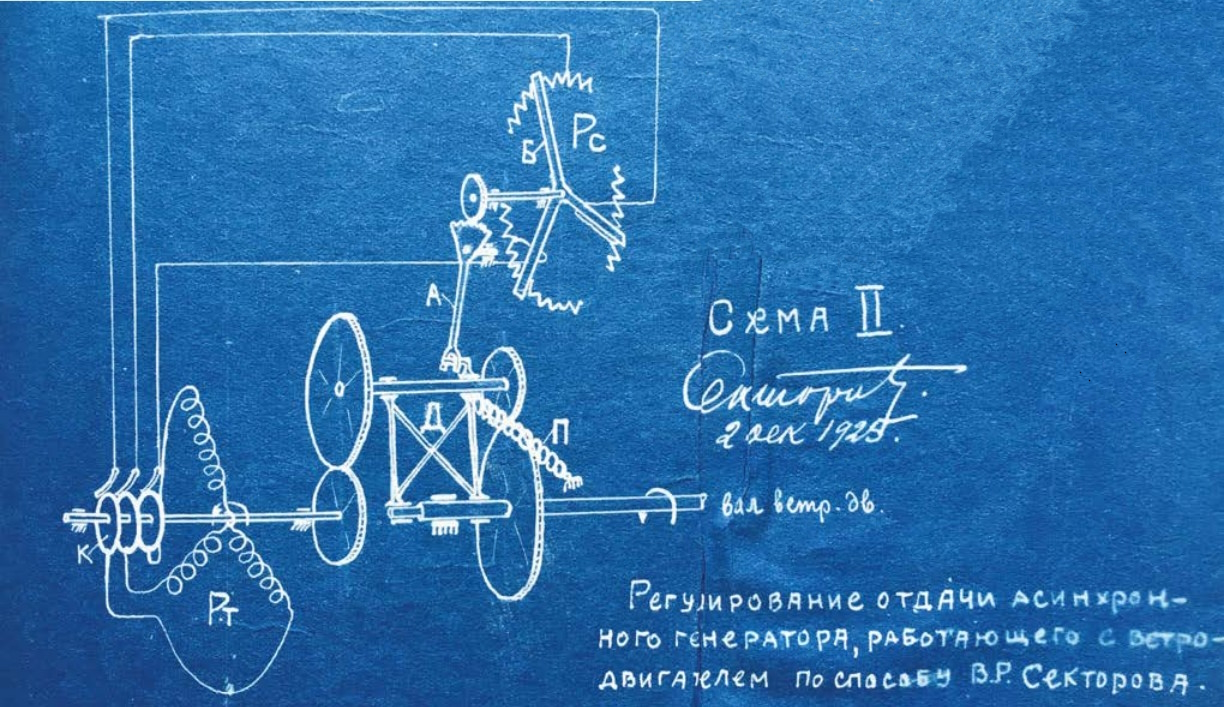 Рс
Б
А
Схема II.
Секторов.
2 дек 1925.
Д
П
вал ветр. дв.
К
Рт
Регулирование отдачи асинхрон-
ного генератора, работающего с ветро-
двигателем по способу В.Р. Секторова.